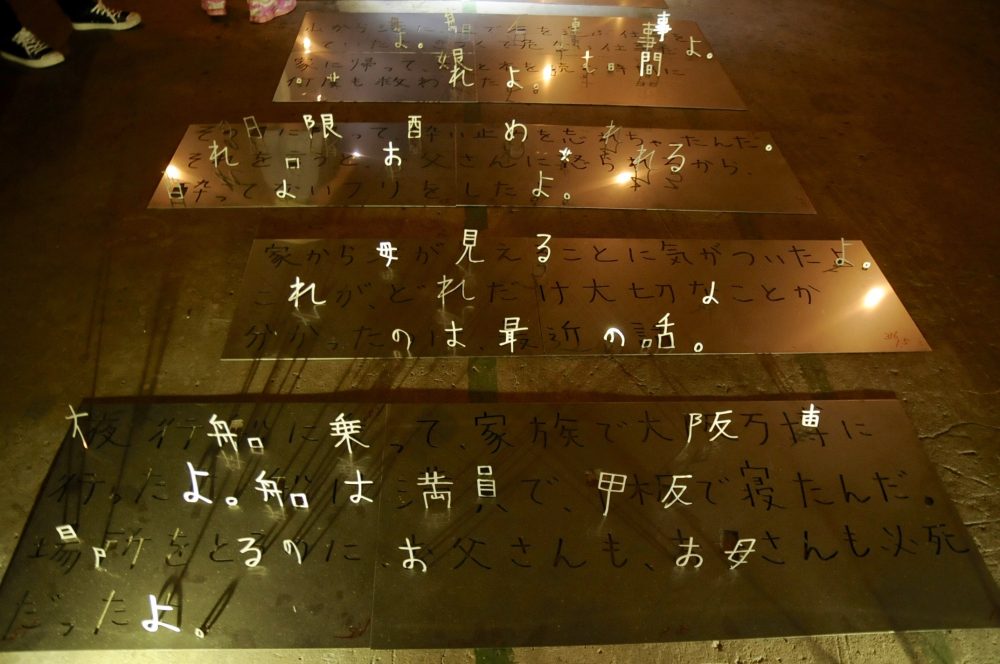 家に帰って、 時間に
何度も救われたよ。
その日に限って酔い止めを忘れちゃったんだ。
それを言うと、お父さんに怒られるから、
酔ってないフリをしたよ。
家から海が見えることに気がついたよ。
これが、どれだけ大切なことか
分かったのは、最近の話。
夜行船に乗って、家族で大阪万博に
行ったよ。船は満員で、甲板で寝たんだ。
場所をとるのに、お父さんも、お母さんも必死
だったよ。